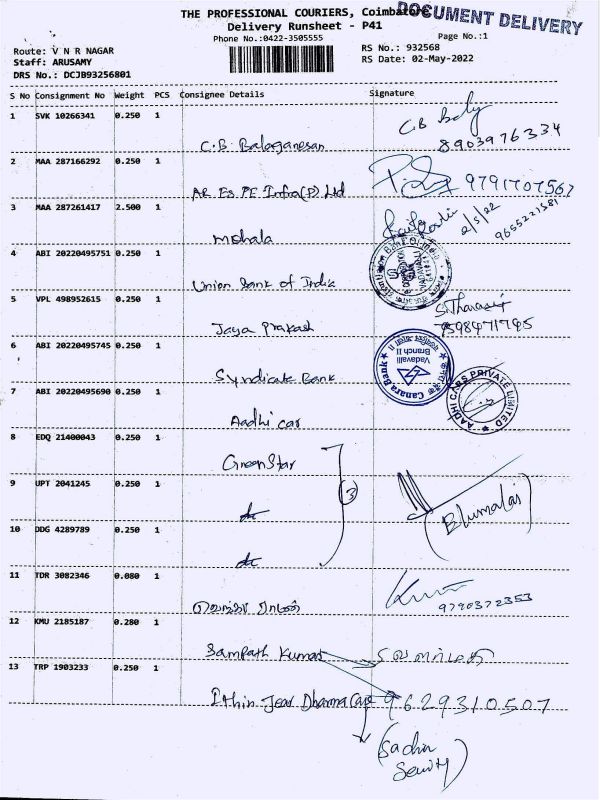 THE PROFESSIONAL COURIERS, Coimbatore
DOCUMENT DELIVERY
Delivery Runsheet - P41
Phone No.:0422-3505555
Page No.:1
Route: V N R NAGAR
RS No.: 932568
Staff: ARUSAMY
RS Date: 02-May-2022
DRS No.: DCJB93256801
S No Consignment No Weight PCS Consignee Details Signature
1 SVK 10266341 0.250 1
C.B. Balaganesan
C.B
8903976334
2 MAA 287166292 0.250 1
AR. Es. PE Infra(P) Ltd
9791707567
3 MAA 287261417 2.500 1
Mohala
2/5/22
9655221581
4 ABI 20220495751 0.250 1
Union Bank of India
5 VPL 498952615 0.250 1
Jaya Prakash
7598471795
6 ABI 20220495745 0.250 1
Syndicate Bank
Canara Bank
Vadavalli
Branch II
7 ABI 20220495690 0.250 1
Aadhi car
AADHI CARS PRIVATE LIMITED
8 EDQ 21400043 0.250 1
Green Star
9 UPT 2041245 0.250 1
do
(3)
10 DDG 4289789 0.250 1
do
11 TDR 3082346 0.080 1
9790372353
12 KMU 2185187 0.280 1
Sampath Kumar
13 TRP 1903233 0.250 1
9629310507
(Sachin